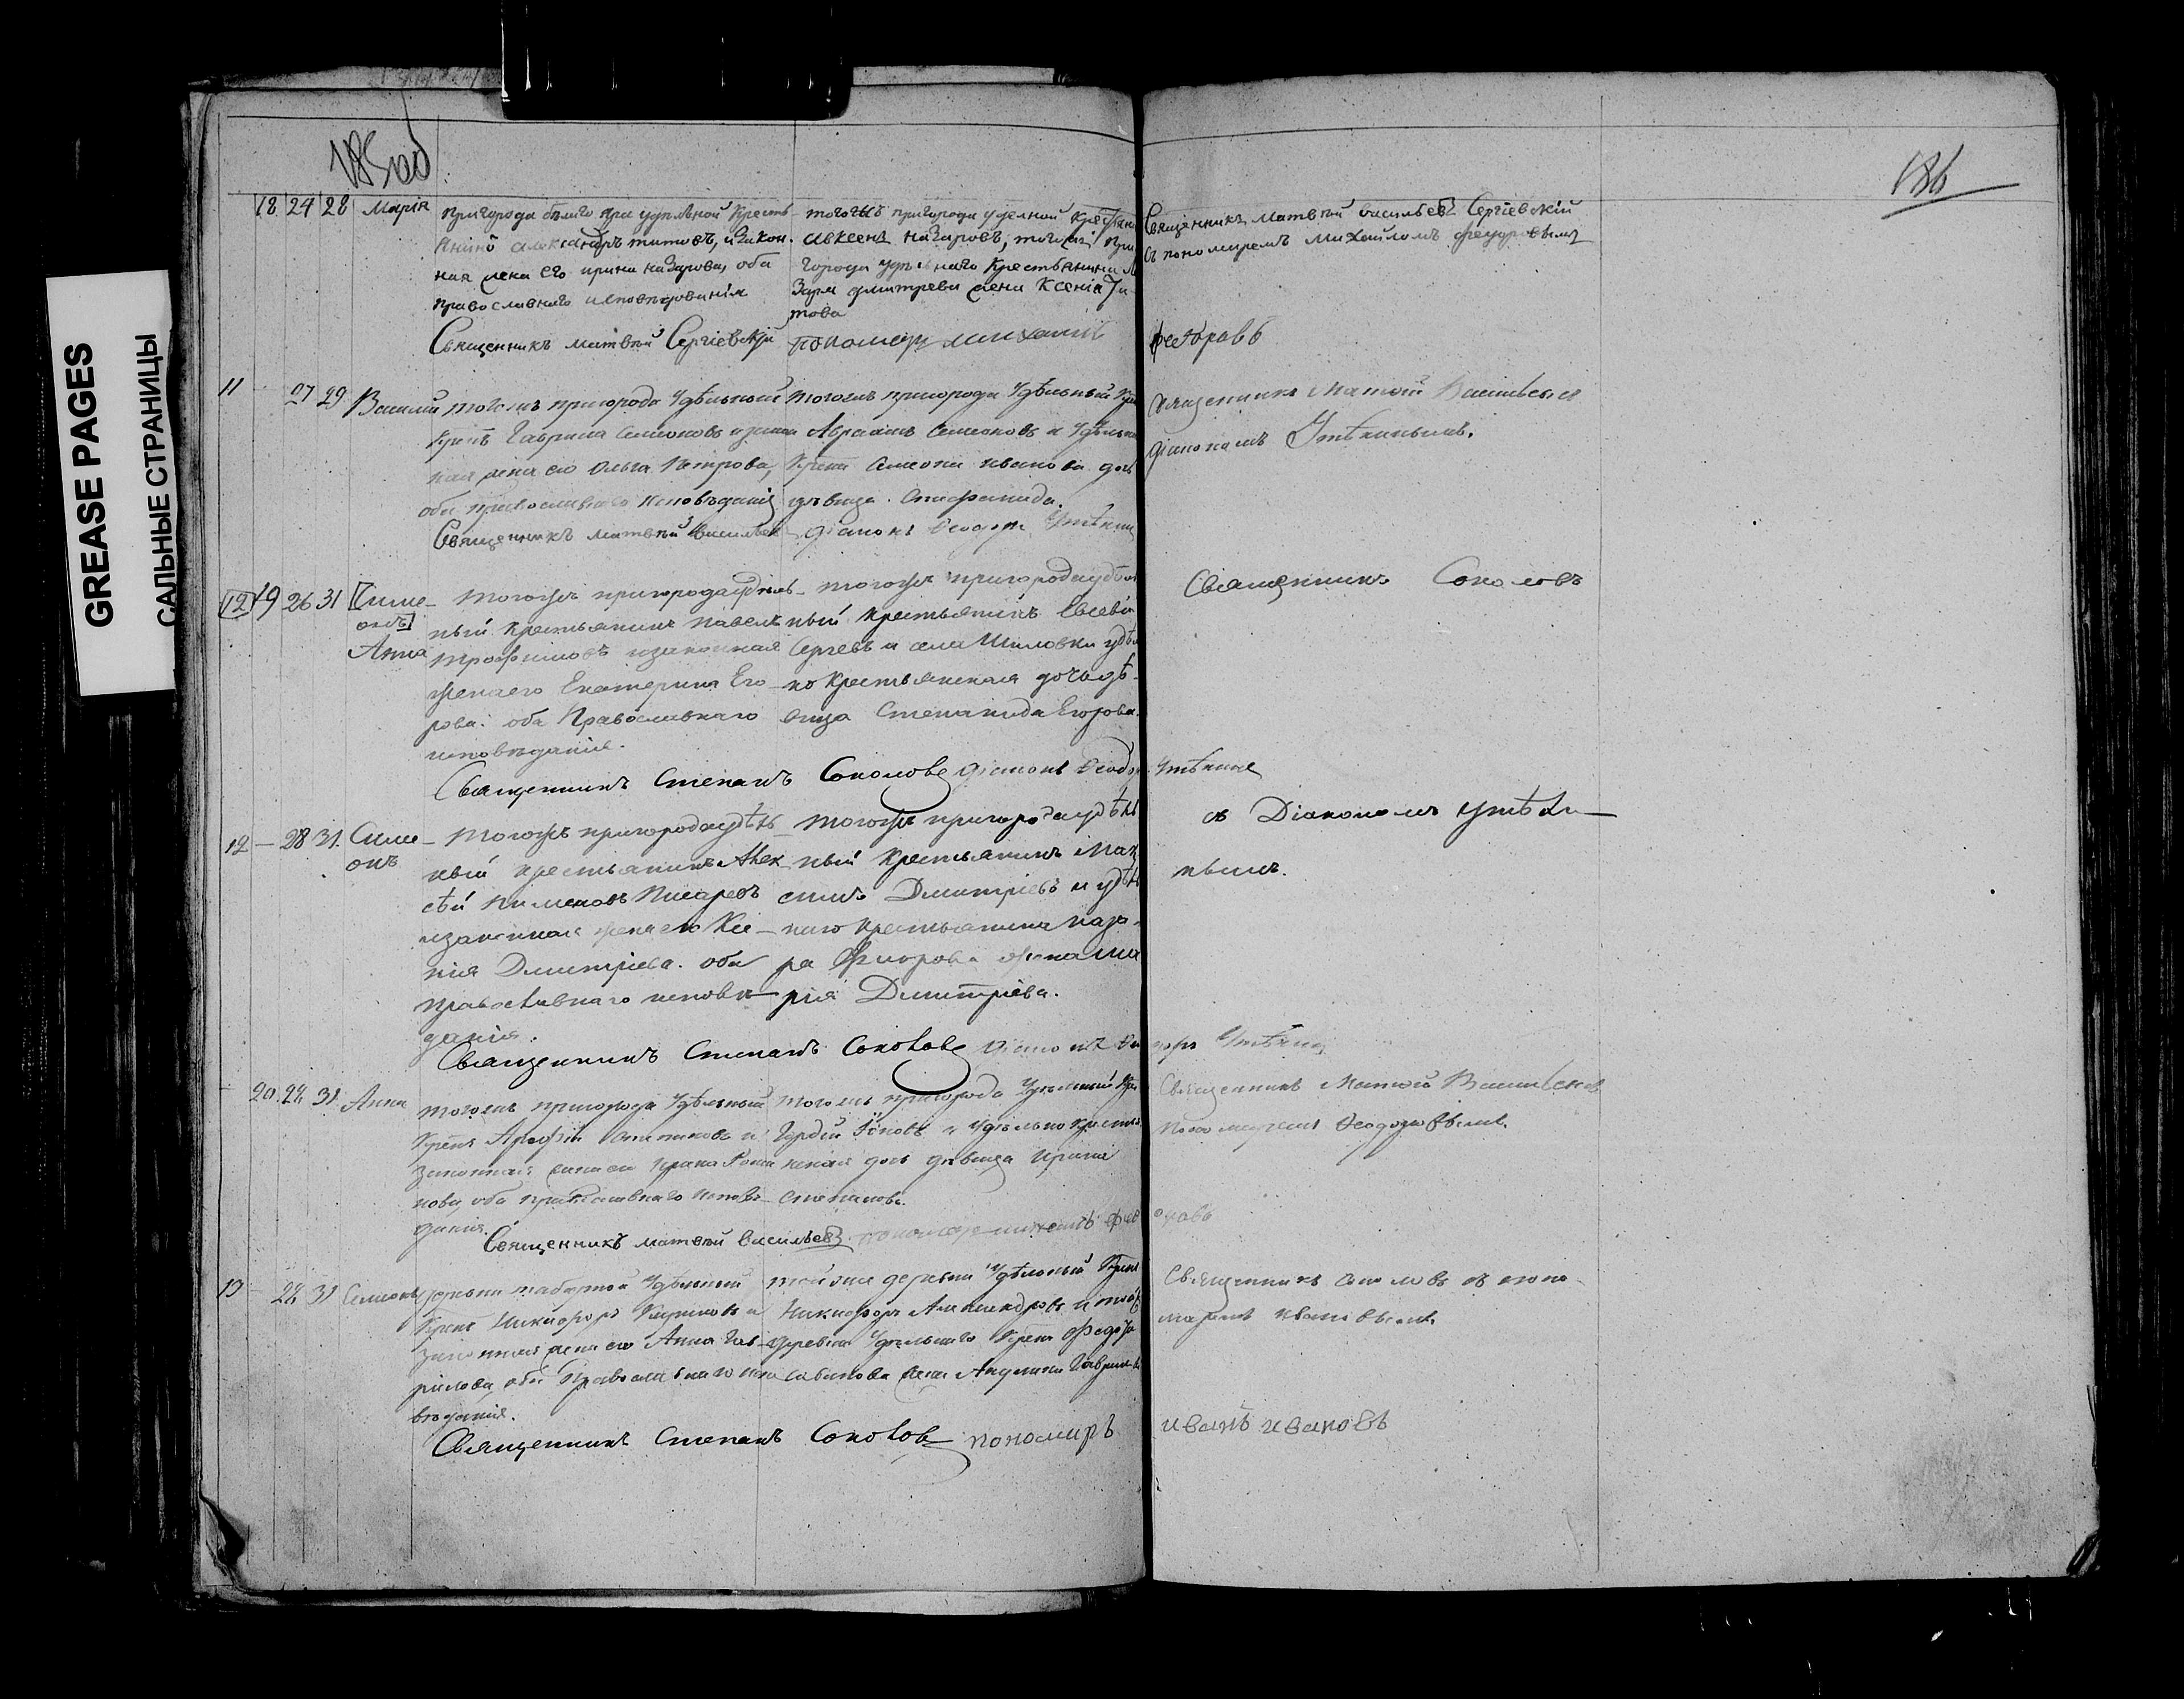 GREASE PAGES
САЛЬНЫЕ СТРАНИЦЫ
185об
186
18 24 28 Марія
пригорода бѣлаго яра удѣльной Кресть
янинъ александръ титовъ, и закон.
ная жена его ирина назарова, оба
православнаго исповѣданія
тогожъ пригорода удельной Крестьян
авксенъ назаровъ, тогожъ при
города удѣльнаго Крестьянина
Зара дмитрева жена Ксенія Ти
това
Священникъ матвѣй васильевъ Сергіевскій
съ пономаремъ михаиломъ федоровымъ
Священникъ матвѣй Сергіевскій пономарь михаилъ
федоровъ
11 27 29 Василій
тогожъ пригорода Удѣльный
Крест. Гаврила Семеоновъ и закон
ная жена его Ольга Петрова,
оба православнаго исповѣданія
тогожъ пригорода Удѣльный Кре
Авраамъ Семеоновъ и Удѣльна
Крест Семеона иванова дочь
дѣвица
Священникъ Матвѣй Васильевъ съ
діакономъ Утѣхинымъ.
Священникъ матвѣй Васильев діаконъ Ѳеодоръ Утѣхин
12 19 26 31 Симе-
онъ
Анна
Тогожъ пригорода удѣль-
ный крестьянинъ павелъ
трофимовъ и законная
жена его Екатерина Его-
рова. оба Православнаго
исповѣданія.
тогожъ пригорода удѣл
ный крестьянинъ Евсевій
Сергѣевъ и села Шиловки удѣл
но крестьянская дочь дѣ-
вица Степанида Егорова.
Священникъ Соколовъ
Священникъ Степанъ Соколовъ діаконъ Ѳеодор
Утѣхинъ
12 — 28 31. Симе-
онъ
Тогожъ пригорода удѣль-
ный крестьянинъ Алек
сѣй Пименовъ Писаревъ
и законная жена его Ксе-
нія Дмитріева. оба
православнаго исповѣ-
данія.
тогожъ пригорода удѣль
ный крестьянинъ Мак
симъ Дмитріевъ и удѣль
наго крестьянина наза-
ра Федорова жена Ма
рія Дмитріева.
съ Діакономъ Утѣхи-
нымъ.
Священникъ Степанъ Соколовъ діаконъ Ѳео
доръ Утѣхинъ
20. 28 31 Анна
тогожъ пригорода Удѣльный
законная жена его
нова, оба православнаго исповѣ-
данія.
тогожъ пригорода Удѣльный Кре
Гордѣй и Удѣльно крестья
ская дочь дѣвица Ирина
Степанова.
Священникъ Матвѣй Васильевъ съ
пономаремъ Ѳеодоровымъ.
Священникъ матвѣй васильевъ пономарь михаилъ фео
ровъ
13 28 31 Семеонъ
деревни Удѣльный
Крест Никифоръ Кириловъ и
законная жена его Анна Гав-
рилова, оба Православнаго испо
вѣданія.
той же деревни Удѣльный Крест
Никифоръ Александровъ и той
деревни Удѣльнаго Крест Федота
жена Гаврилова
Священникъ Соколовъ съ поно-
маремъ Ивановымъ.
Священникъ Степанъ Соколовъ пономарь
иванъ ивановъ